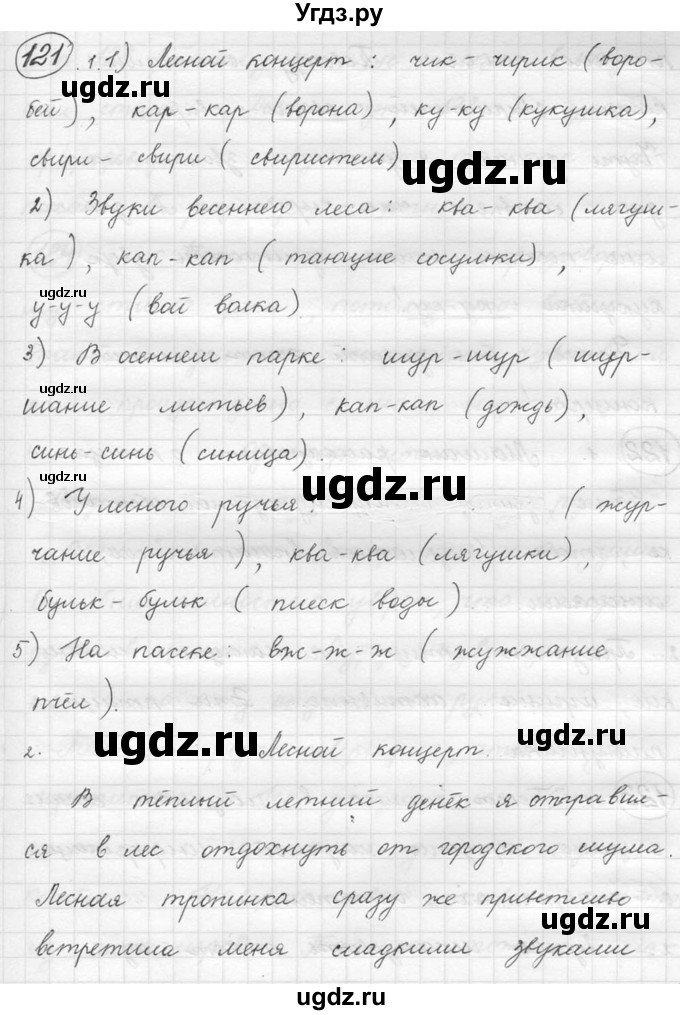 Угдз.ру
121. 1. 1) Лесной концерт: чик-чирик (воро-
бей), кар-кар (ворона), ку-ку (кукушка),
свири-свири (свиристели)
ugdz.ru
ugdz.ru
2) Звуки весеннего леса: ква-ква (лягуш-
ка), кап-кап (тающие сосульки),
ugdz.ru
у-у-у (вой волка).
3) В осеннем парке: шур-шур (шур-
ugdz.ru
шание листьев), кап-кап (дождь),
синь-синь (синица).
ugdz.ru
4) У лесного ручья: (жур-
чание ручья), ква-ква (лягушки),
бульк-бульк (плеск воды).
5) На пасеке: вж-ж-ж (жужжание
пчёл).
ugdz.ru
2. Лесной концерт.
В тёплый летний денёк я отправил-
ся в лес отдохнуть от городского шума.
Лесная тропинка сразу же приветливо
ugdz.ru
встретила меня сладкими звуками
ugdz.ru